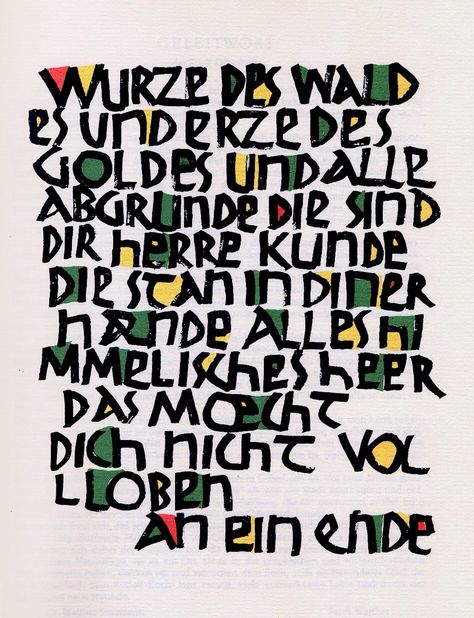 GELEITWORT
WURZE DES WALD
ES UND ERZE DES
GOLDES UND ALLE
ABGRUNDE DIE SIND
DIR HERRE KUNDE
DIE STAN IN DINER
HÆNDE ALLES HI
MMELISCHES HEER
DAS MŒCHT
DICH NICHT VOL
LLOBEN
AN EIN ENDE